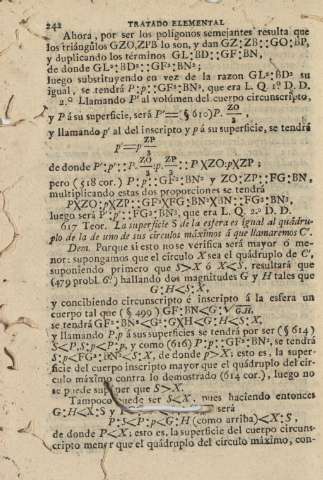 242 TRATADO ELEMENTAL
Ahora, por ser los polígonos semejantes resulta que
los triángulos GZO, ZPB lo son, y dan GZ:ZB::GO:BP,
y duplicando los términos GL:BD::GF:BN,
de donde GL²:BD²::GF²:BN²;
luego substituyendo en vez de la razon GL²:BD² su
igual, se tendrá P:p::GF²:BN², que era L. Q. 1º D. D.
2.º Llamando P' al volúmen del cuerpo circunscripto,
y P á su superficie, será P'=(§ 610)P. ZO/3,
y llamando p' al del inscripto y p á su superficie, se tendrá
p'=p. ZP/3,
de donde P':p'::P. ZO/3 : p. ZP/3 :: P×ZO:p×ZP;
pero (518 cor.) P:p::GF²:BN² y ZO:ZP::FG:BN,
multiplicando estas dos proporciones se tendrá
P×ZO:p×ZP::GF²×FG:BN²×BN::FG³:BN³,
luego será P':p'::FG³:BN³, que era L. Q. 2.º D. D.
617 Teor. La superficie S de la esfera es igual al quádru-
plo de la de uno de sus círculos máximos á que llamaremos C'.
Dem. Porque si esto no se verifica será mayor ó me-
nor: supongamos que el círculo X sea el quádruplo de C',
suponiendo primero que S>X ó X<S, resultará que
(479 probl. 6.º) hallando dos magnitudes G y H tales que
G:H<S:X,
y concibiendo circunscripto é inscripto á la esfera un
cuerpo tal que (§ 499) GF:BN<G:√G.H,
se tendrá GF²:BN²<G²:G×H<G:H<S:X,
y llamando P,p á sus superficies se tendrá por ser (§ 614)
S<P,S:p<P:p, y como (616) P:p::GF²:BN², se tendrá
S:p<FG²:BN²<S:X, de donde p>X; esto es, la super-
ficie del cuerpo inscripto mayor que el quádruplo del cír-
culo máximo contra lo demostrado (614 cor.), luego no
se puede suponer que S>X.
Tampoco puede ser S<X, pues haciendo entonces
G:H<X:S y será
P:S<P:p<G:H (como arriba)<X:S,
de donde P<X; esto es, la superficie del cuerpo circuns-
cripto menor que el quádruplo del círculo máximo, con-